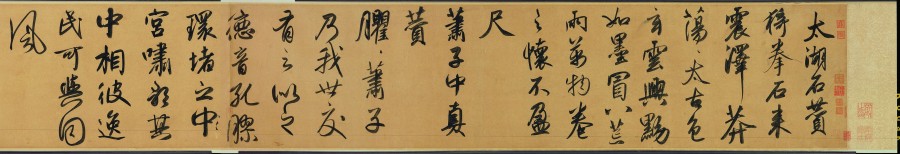 太湖石贊
猗拳石来
震澤莽
蕩太古色
玄雲興黝
如墨冒八荒
雨萬物卷
之懷不盈
尺
蕭子中真
贊
臞〻蕭子
乃我世交
有之似之
德音孔膠
環堵之中
宮嘯歌其
中相彼逸
民可與同
風